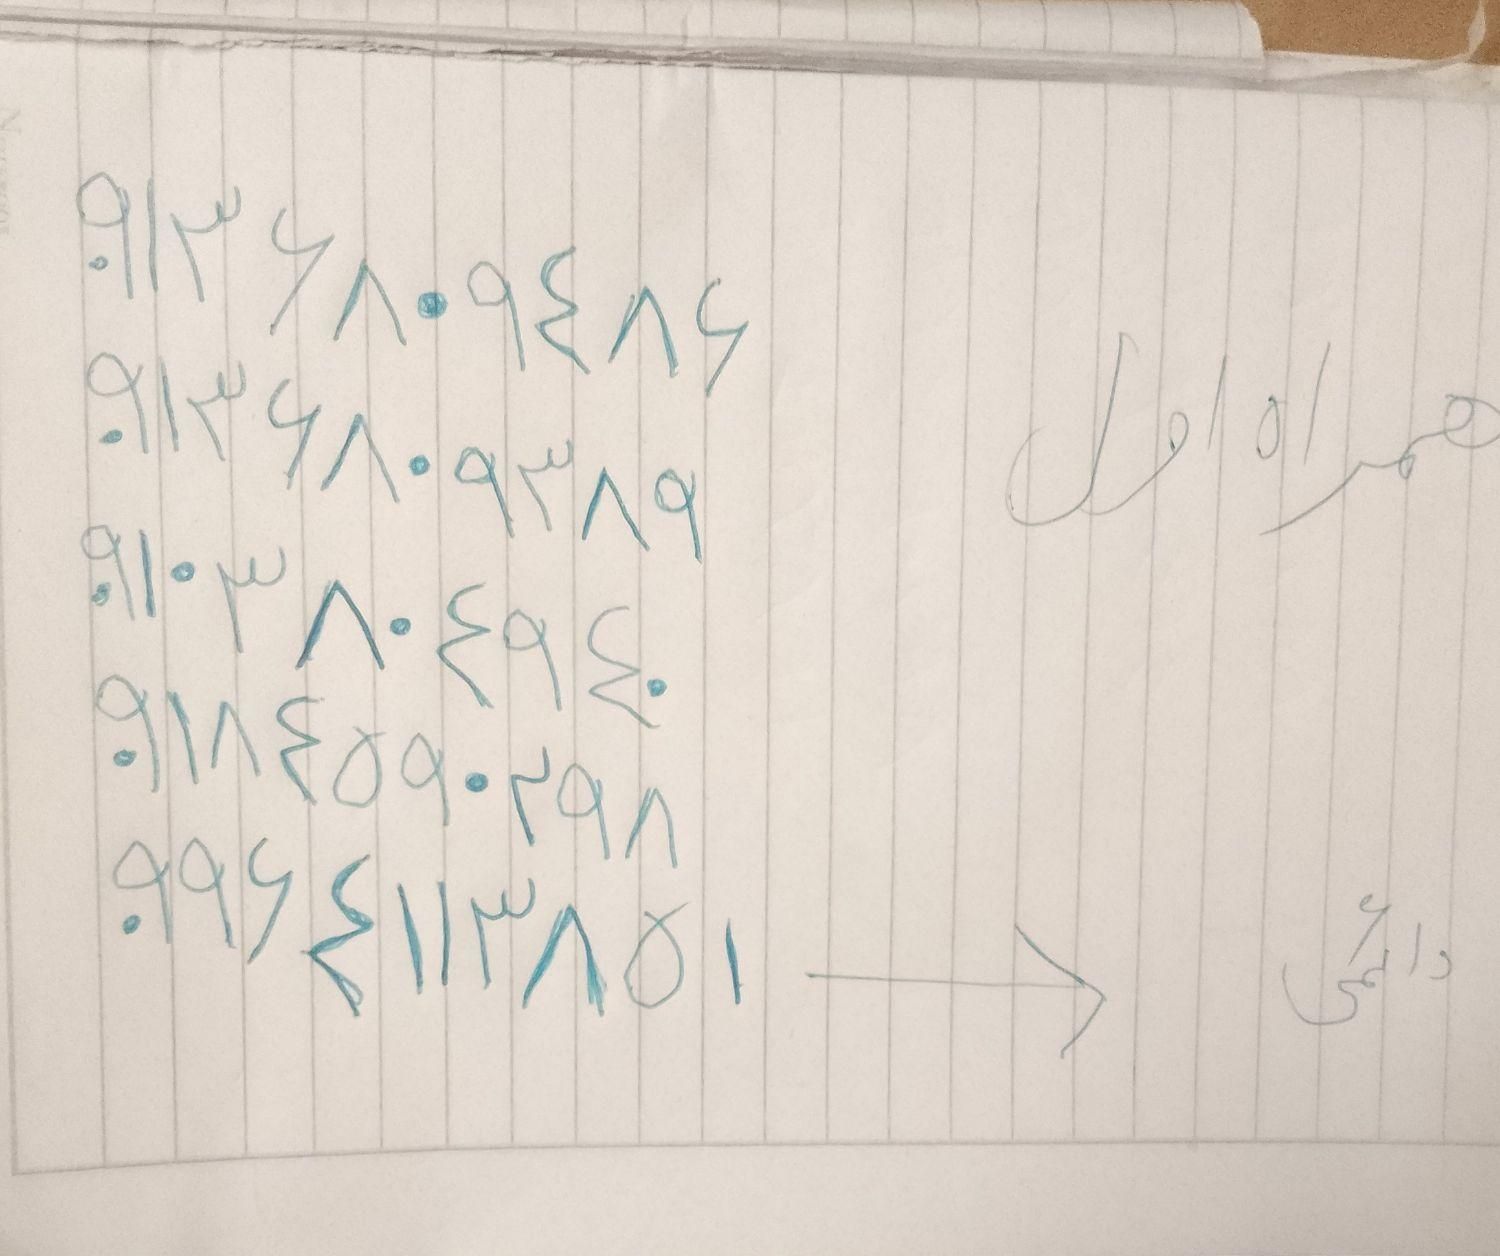 ۰۹۱۳۶۸۰۹۴۸۶
۰۹۱۳۶۸۰۹۳۸۹
همراه اول
۰۹۱۰۳۸۰۴۹۴۰
۰۹۱۸۴۵۹۰۲۹۸
۰۹۹۶۴۱۱۳۸۵۱ → دائمی